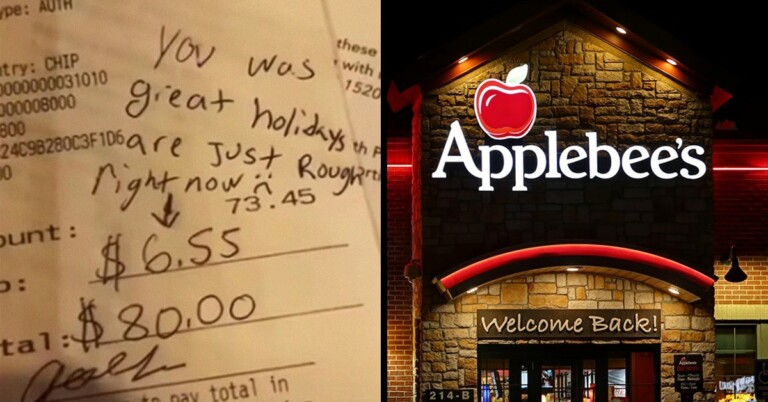 ype: AUTH
You was
great holidys
are Just Rough
right now
these
with
1520
try: CHIP
0000000031010
000008000
800
24C9B280C3F1D6
00
th
73.45
ount:
$6.55
p:
tal: $80.00
to pay total in
Applebee's
Welcome Back!
214-B